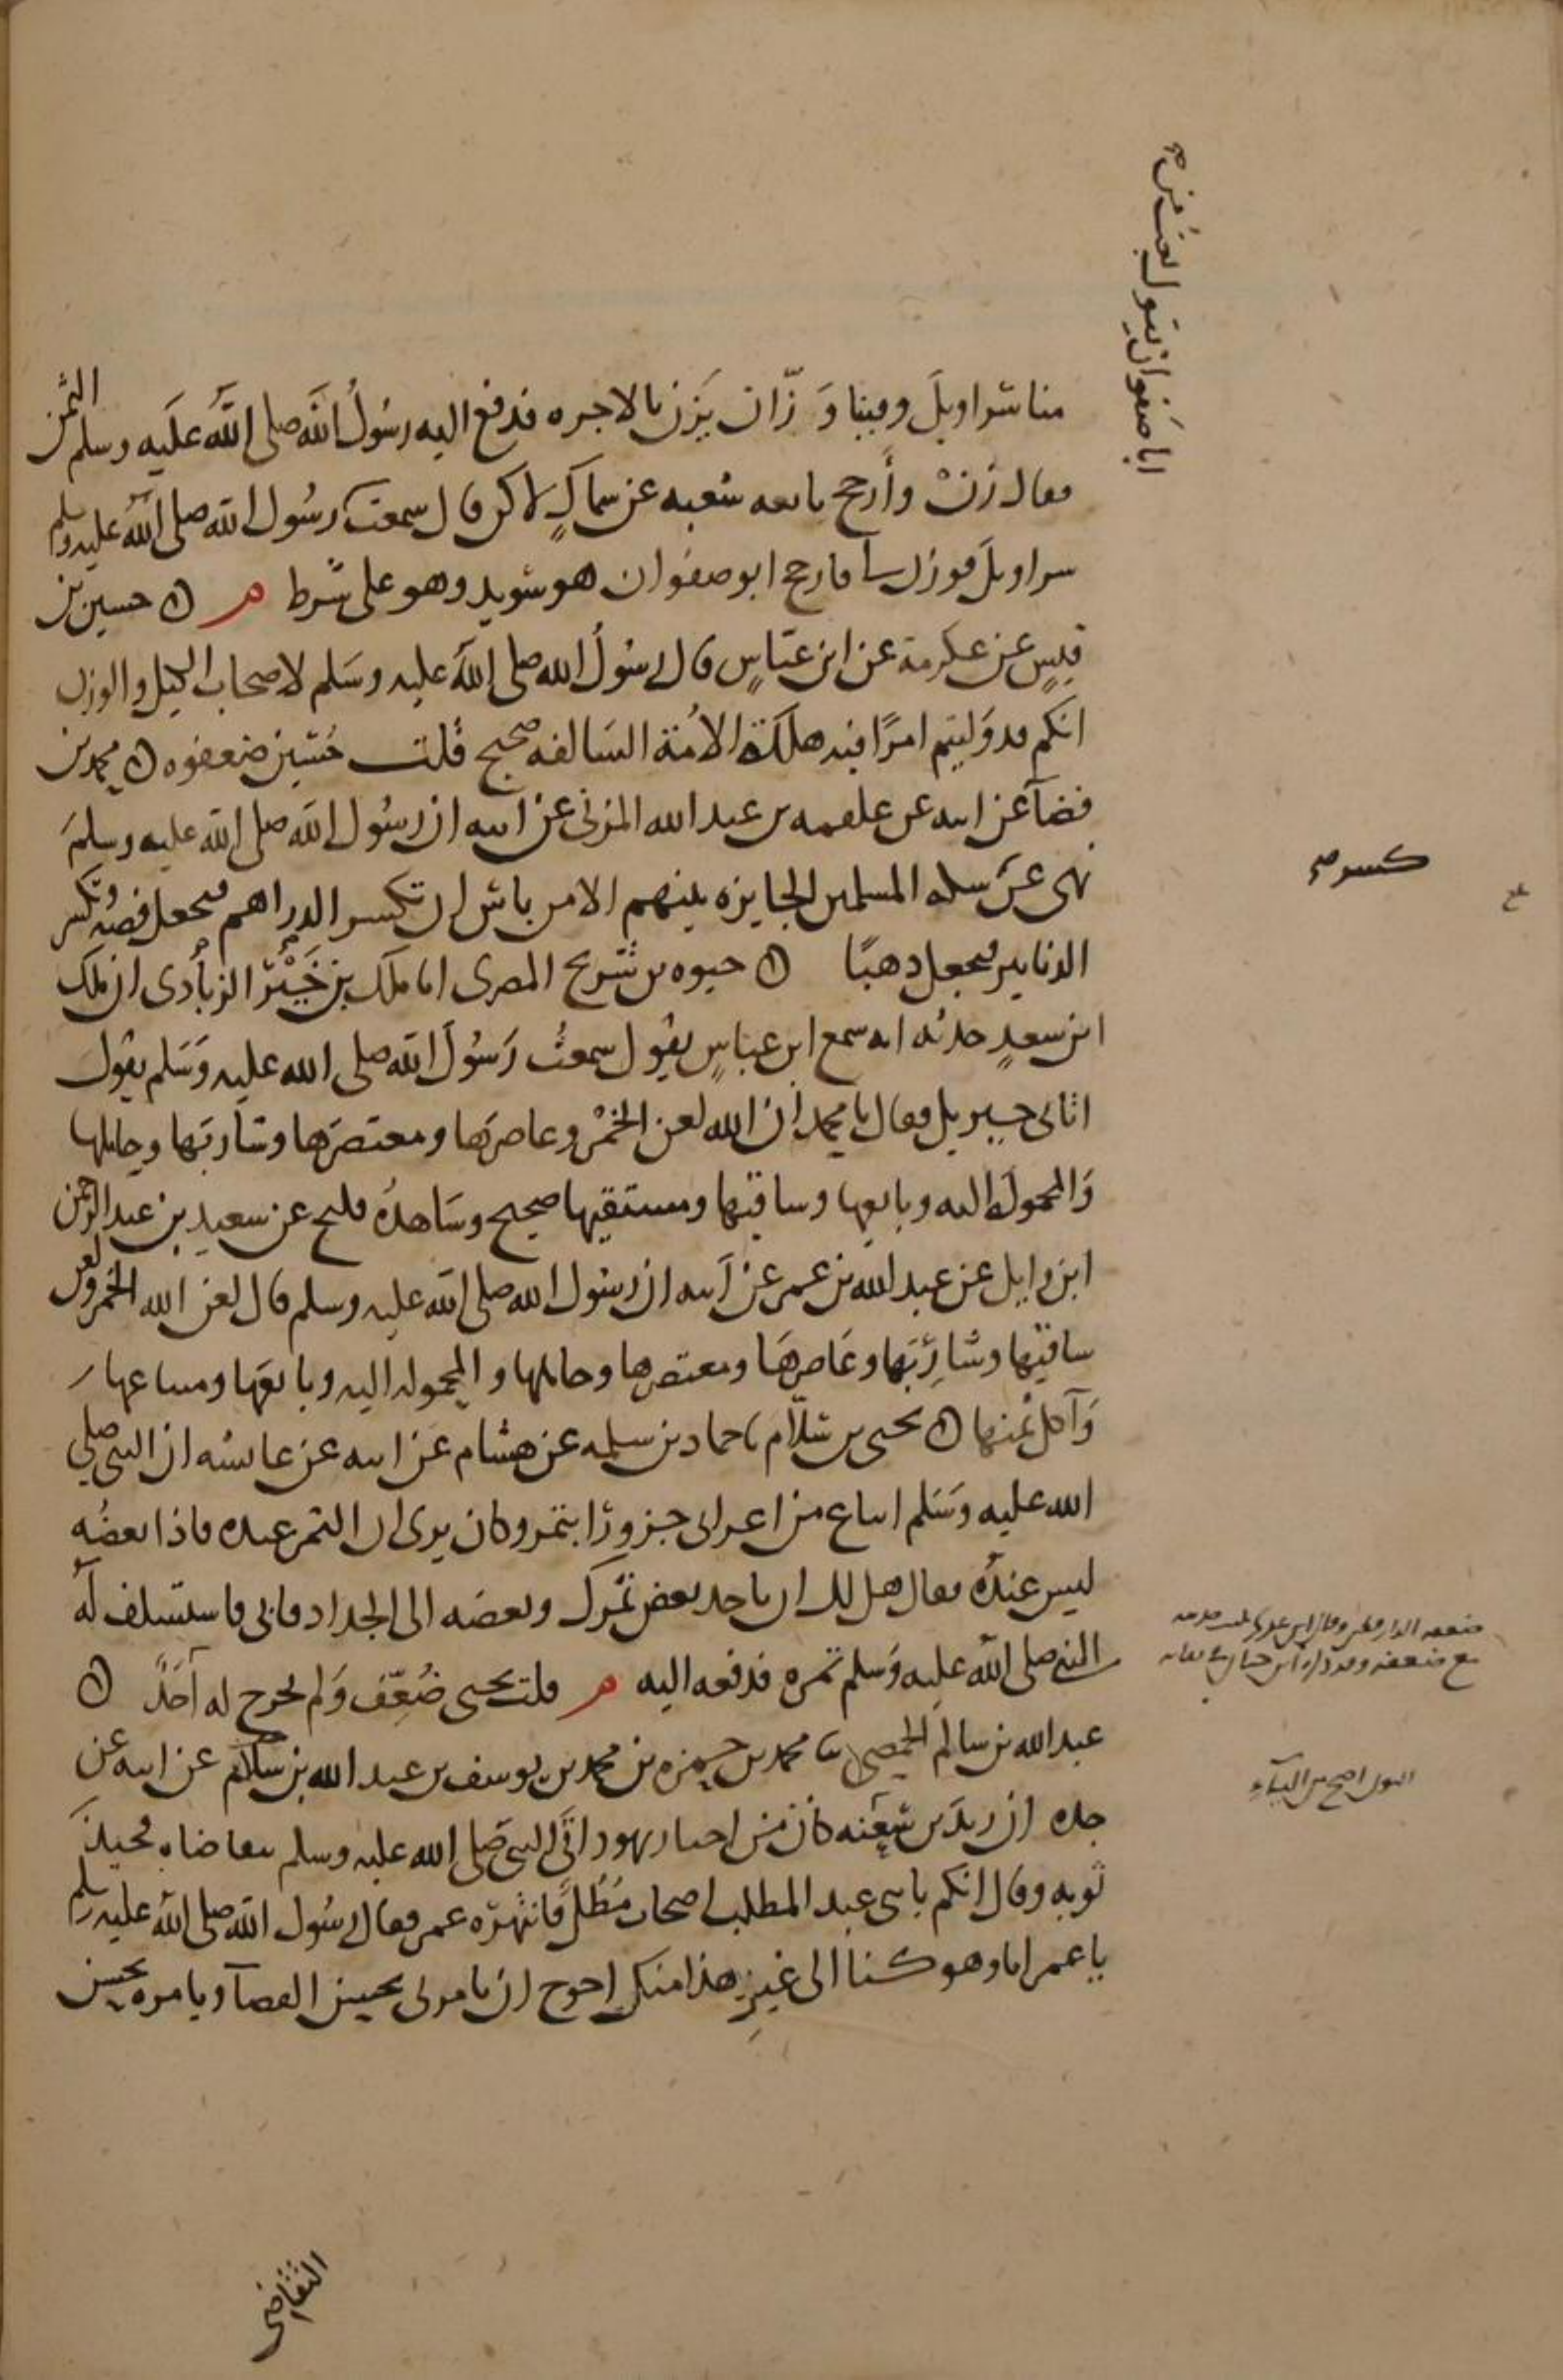 منا سراويلَ وفينا وَزّان يَزن بالاجره فدفع اليه رسُولُ الله صلى الله علَيه وسلم الثمن
فقال زنْ وأَرجح تابعه شعبه عن سماكٍ لاكن قال سمعت ابا صَفوان يقول بعتُ من رسُول الله صلى الله عليه وسلم
سراويلَ فوزن لنا فارجح ابو صفوان هو سُويد وهو على شرط م حسين بن
قيسٍ عن عكرمة عن ابن عبّاسٍ قال رسُولُ الله صلى الله عليه وسَلم لاصحاب الكيل والوزن
انكم قد وَليتم امرًا فيه هلكَة الاُمة السَالفه صحيح قُلت حُسَين ضعفوه محمد بن
فضاء عن ابيه عن علقمه بن عبد الله المزنى عن ابيه ان رسُول الله صلى الله عليه وسلم
نهى عن كسر سكه المسلمين الجايزه بينهم الا من باس ان تكسر الدراهم فتجعل فضه وتكسر
الدنانير فتجعل ذهبًا حيوه بن شُريح المصرى انا ملك بن خَيْر الزبَادى ان ملك
ابن سعدٍ حدثه انه سمع ابن عباسٍ يقول سمعتُ رَسُولَ الله صلى الله عليه وَسَلم يقول
اتانى جبريل فقال يا محمد ان الله لعن الخمْر وعاصرَها ومعتصرَها وشاربَها وحاملها
وَالمحمولَة اليه وبايعها وساقيها ومستقيها صحيح وشَاهدُه فليح عن سعيد بن عبد الرحمن
ابن وايل عن عبد الله بن عمر عن ابيه ان رسُول الله صلى الله عليه وسلم قال لعن الله الخمر ولعن
ساقيَها وشارِبَها وعَاصرهَا ومعتصرها وحاملها والمحموله اليه وبايعَها ومبتاعها
وَآكل ثمنها يحيى بن سَلّام نا حماد بن سلمه عن هشام عن ابيه عن عايشه ان النبى صلى
الله عليه وسَلم ابتاع من اعرابى جزورًا بتمر وكان يرى ان التمر عنده فاذا بعضُه
ليس عندَه فقال هل لك ان تاخذ بعض تمرك وبعضه الى الجداد فابى فاستسلف لَه
النبى صلى الله عليه وَسلم تمره فدفعه اليه م قلت يحيى ضُعِّف وَلم يخرج له اَحَدٌ
عبد الله بن سالم الحمصى نا محمد بن حمزه بن محمد بن يوسف بن عبد الله بن سلام عن ابيه عن
جده ان زيدَ بن سَعنه كان من احبار يهود اتَى النبى صلى الله عليه وسلم يتقاضاه فجبذَ
ثوبه وقال انكم يا بنى عبد المطلب اصحاب مُطُلٍ فانتهرَه عمر فقال رسُول الله صلى الله عليه وسلم
يا عمر انا وهو كنا الى غيرِ هذا منك احوج ان تامرنى بحسن القضآ وتامره بحسن
ابا صَفوان يقول بعتُ من صح
كسر صح
ضعفه الدارقطنى وقال ابن عدى يكتب حديثه
مع ضعفه وقد ذكره ابن حبان فى ثقاته
النون اصح من اليآء
التقاضى